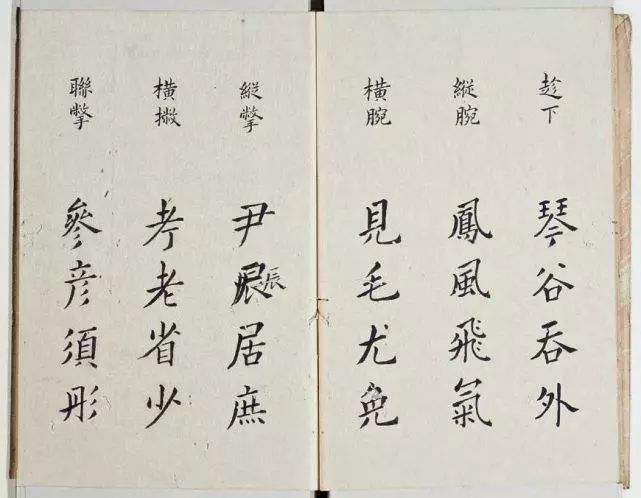 趁下
琴谷吞外
縱腕
鳳風飛氣
橫腕
見毛尤免
縱撆
尹辰居庶
橫撇
考老省少
聯撆
參彥須彤